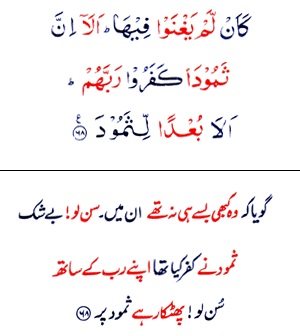 كَاَنْ لَّمْ يَغْنَوْا فِيْهَا ؕ اَلَاۤ اِنَّ
ثَمُوْدَا۠ كَفَرُوْا رَبَّهُمْ ؕ
اَلَا بُعْدًا لِّثَمُوْدَ ۠ ﴿۶۸﴾
گویا کہ وہ کبھی بسے ہی نہ تھے ان میں۔ سن لو! بے شک
ثمود نے کفر کیا تھا اپنے رب کے ساتھ
سُن لو! پھٹکار ہے ثمود پر ﴿۶۸﴾